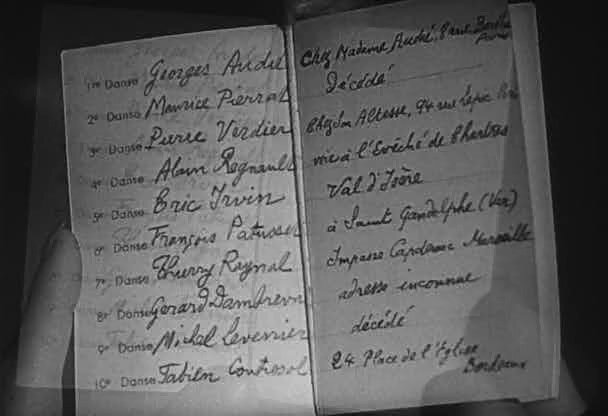 1re Danse Georges Audié
2e Danse Maurice Pierrat
3e Danse Pierre Verdier
4e Danse Alain Regnault
5e Danse Eric Irvin
6e Danse François Patusset
7e Danse Thierry Raynal
8e Danse Gérard Dambrevn
9e Danse Michel Levernier
10e Danse Fabien Coutissol
Chez Madame Audié, 8 rue
Décédé
Chez Jim Altesse, 94 rue Lepic
vic à l'Evêché de
Val d'Isère
à Saint Gandolphe (Var)
Impasse Capdenac Marseille
adresse inconnue
décédé
24 Place de l'Eglise
Bordeaux